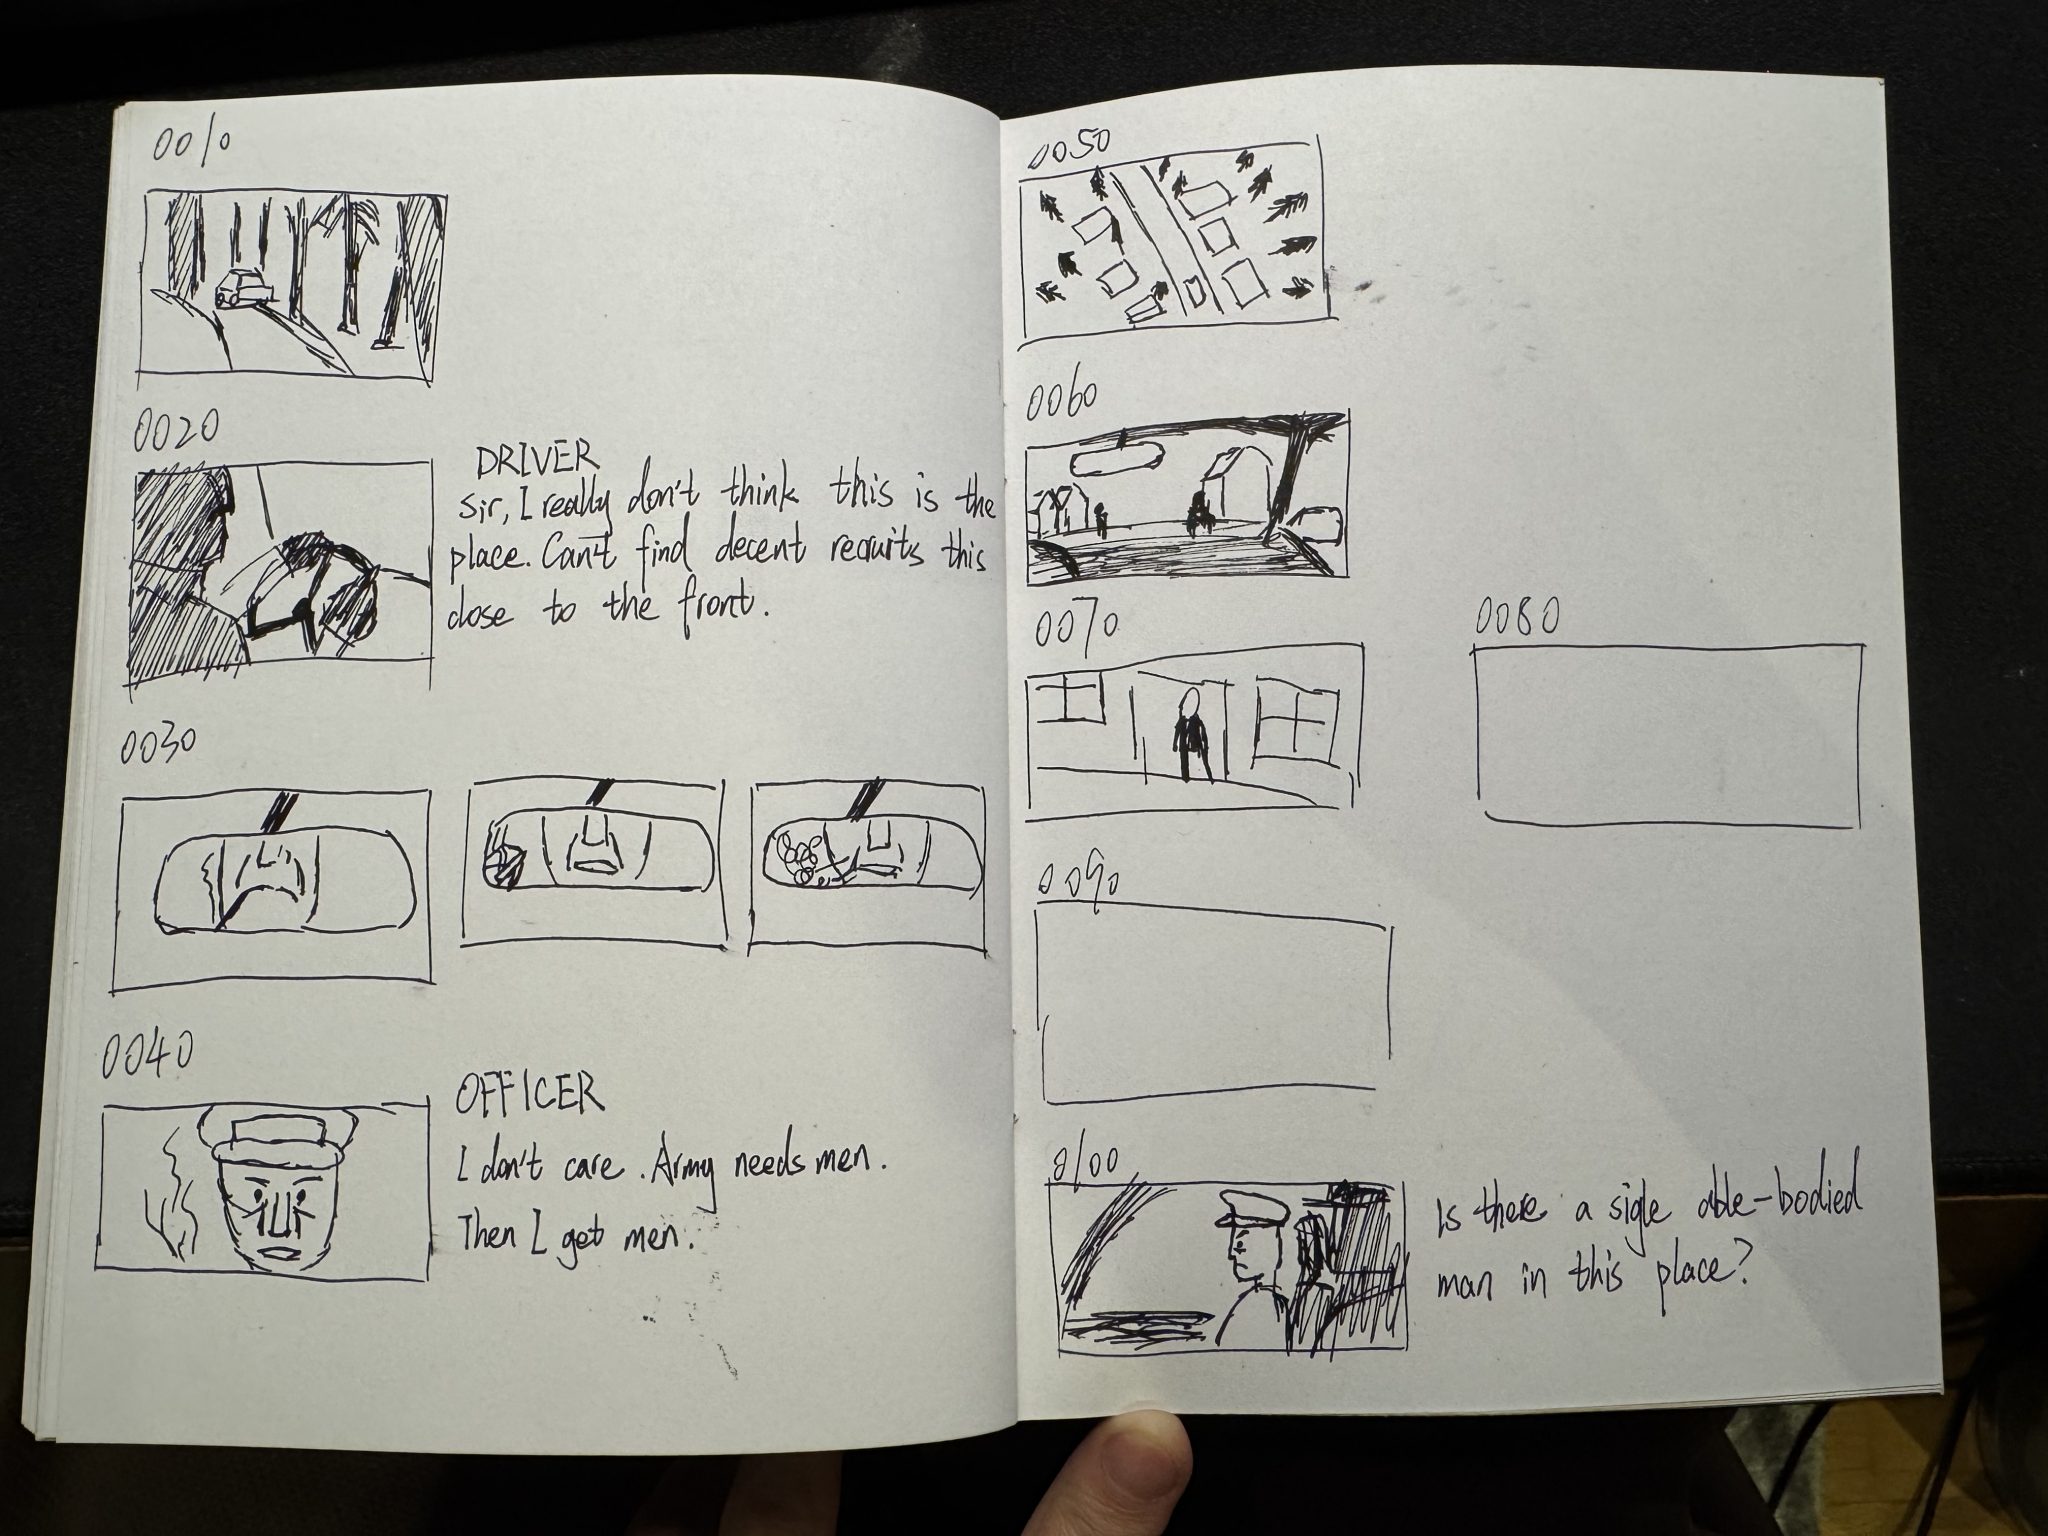 0010
0020
DRIVER
Sir, I really don't think this is the
place. Can't find decent recruits this
close to the front.
0030
0040
OFFICER
I don't care. Army needs men.
Then I get men.
0050
0060
0070
0080
0090
0100
Is there a sigle able-bodied
man in this place?